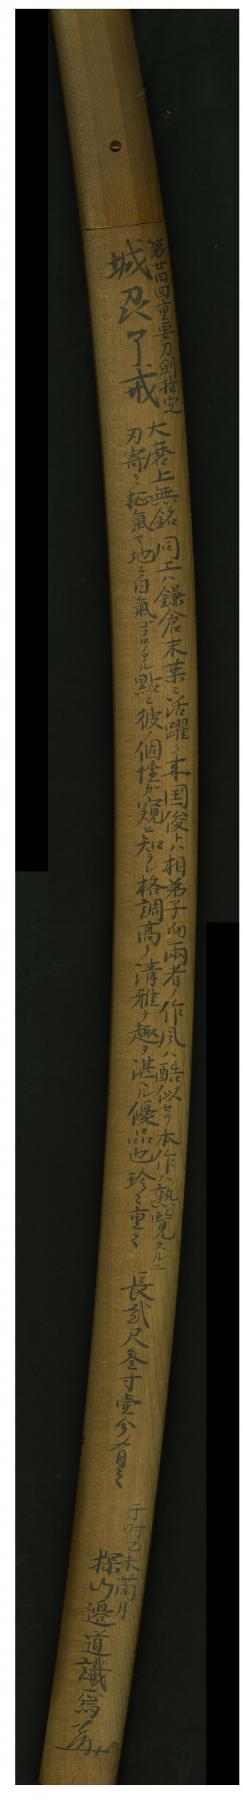 第廿四回重要刀劍指定
城州了戒
大磨上無銘同工ハ鎌倉末葉ニ活躍シ来国俊トハ相弟子而両者ノ作風ハ酷似セリ本作ハ熟覧スルニ
刃寄リ柾氣ヤ地ニ白氣ゴコロノアル點ニ彼ノ個性ガ窺ヒ知ラレ格調高ク清雅ノ趣ヲ湛ヘル優品也珍々重々
長貳尺叄寸壹分有之
于時乙未蘭月
探山邉道識